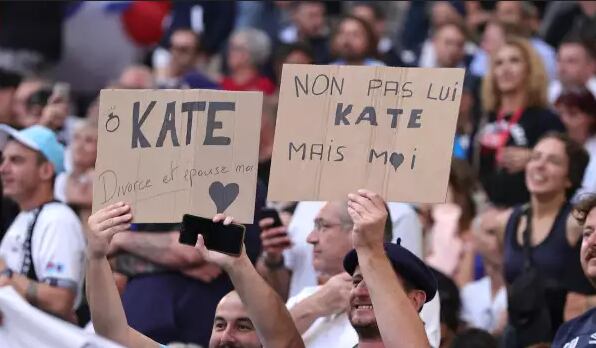 Ô KATE
Divorce et épouse moi
NON PAS LUI
KATE
MAIS MOI